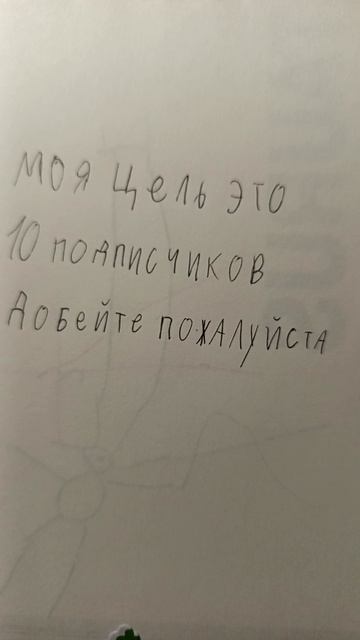 моя цель это
10 подписчиков
добейте пожалуйста